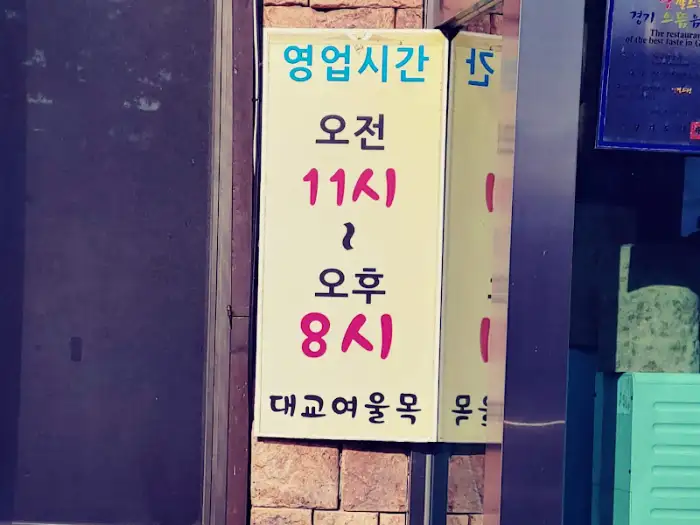 영업시간
오전
11시
~
오후
8시
대교여울목
경기 으뜸
The restaurant
of the best taste in